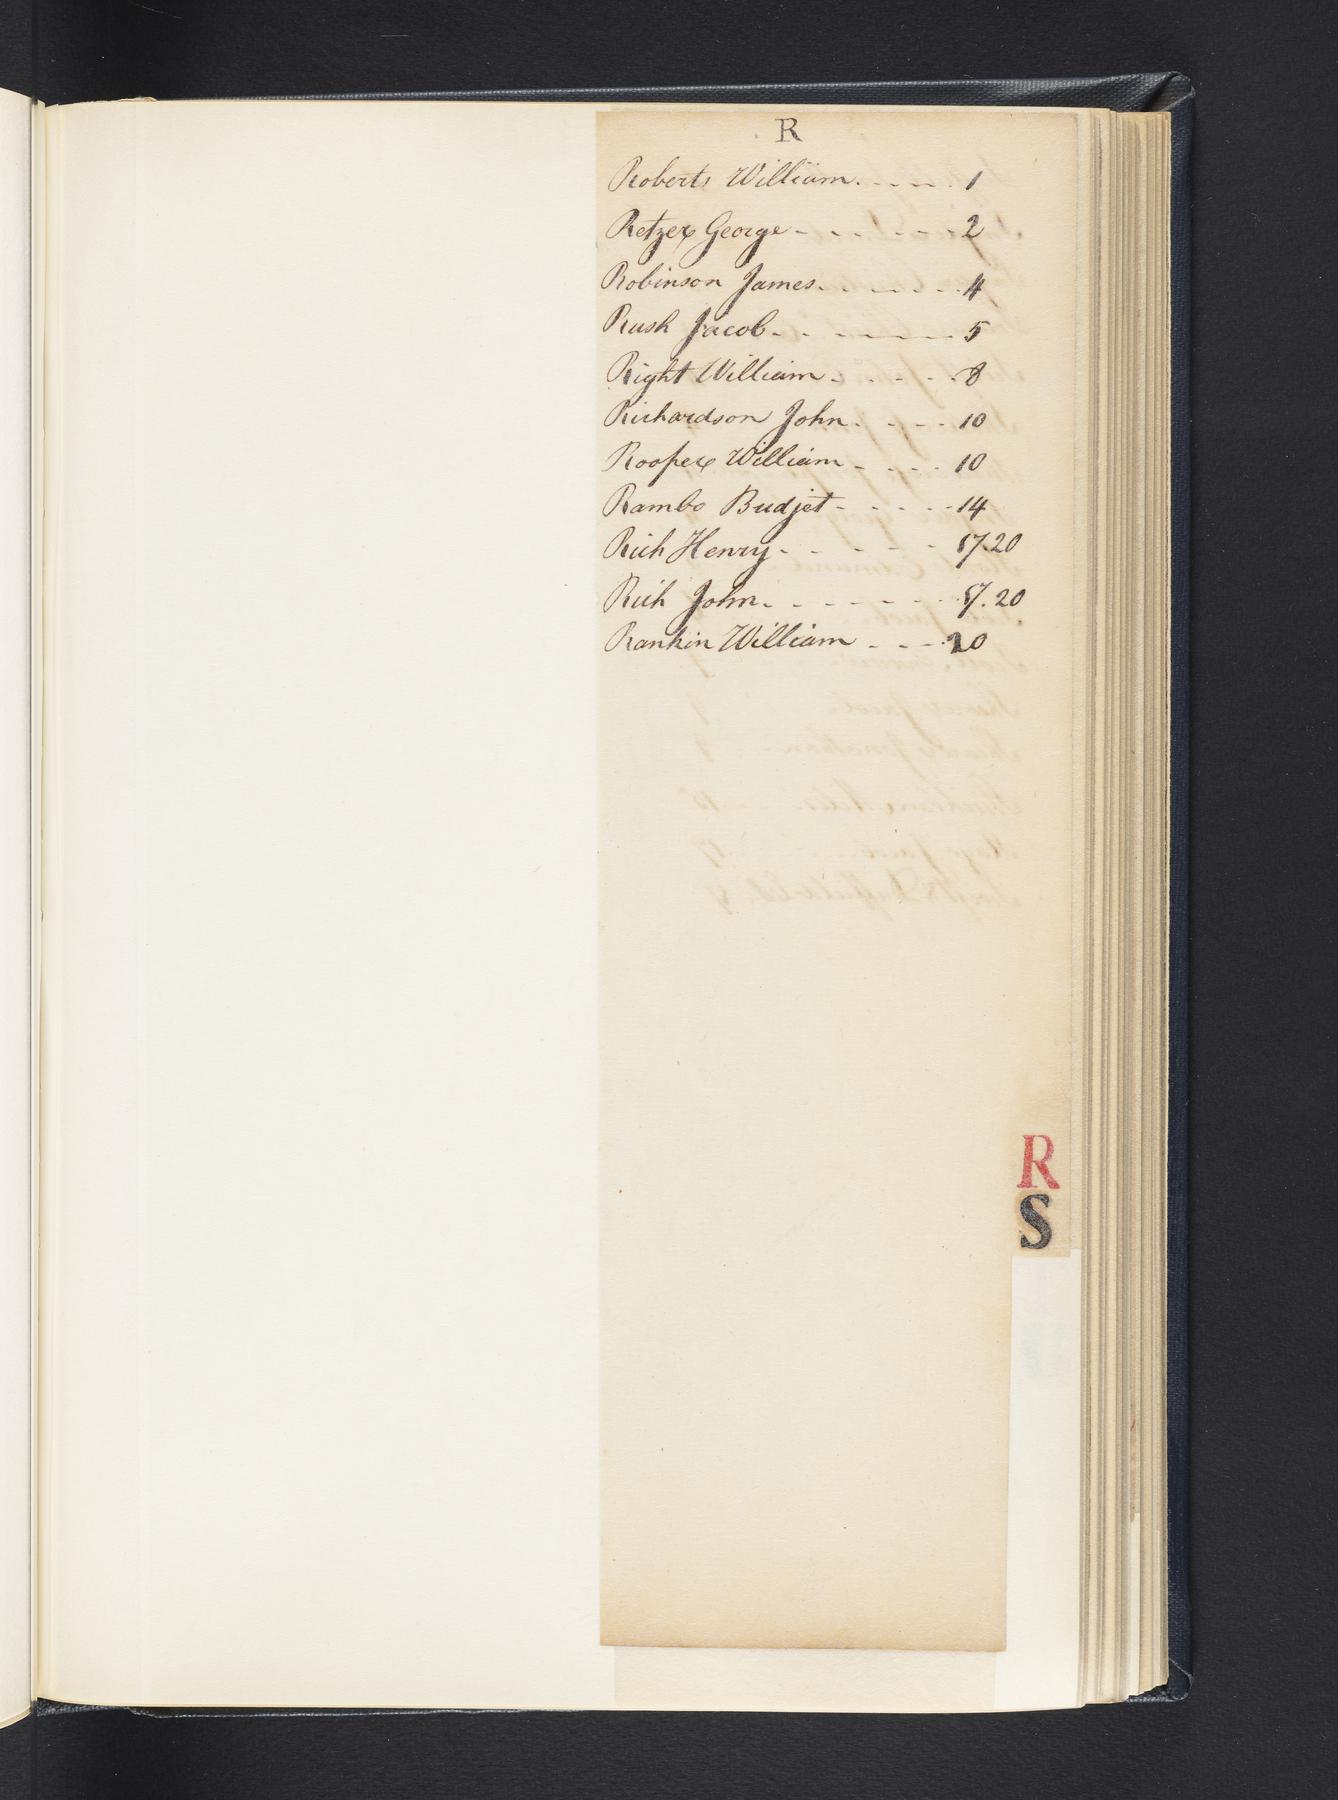 R
Roberts William. - - - . 1
Retzer George - - - - - - 2
Robinson James. - - - - . 4
Rush Jacob - - - - - - 5
Right William - - - - - 8
Richardson John. - - - - 10
Rooper William - - - - 10
Rambo Budjet - - - - - 14
Rich Henry - - - - - 17.20
Rich John. - - - - - - 17.20
Rankin William - - - 20
R
S